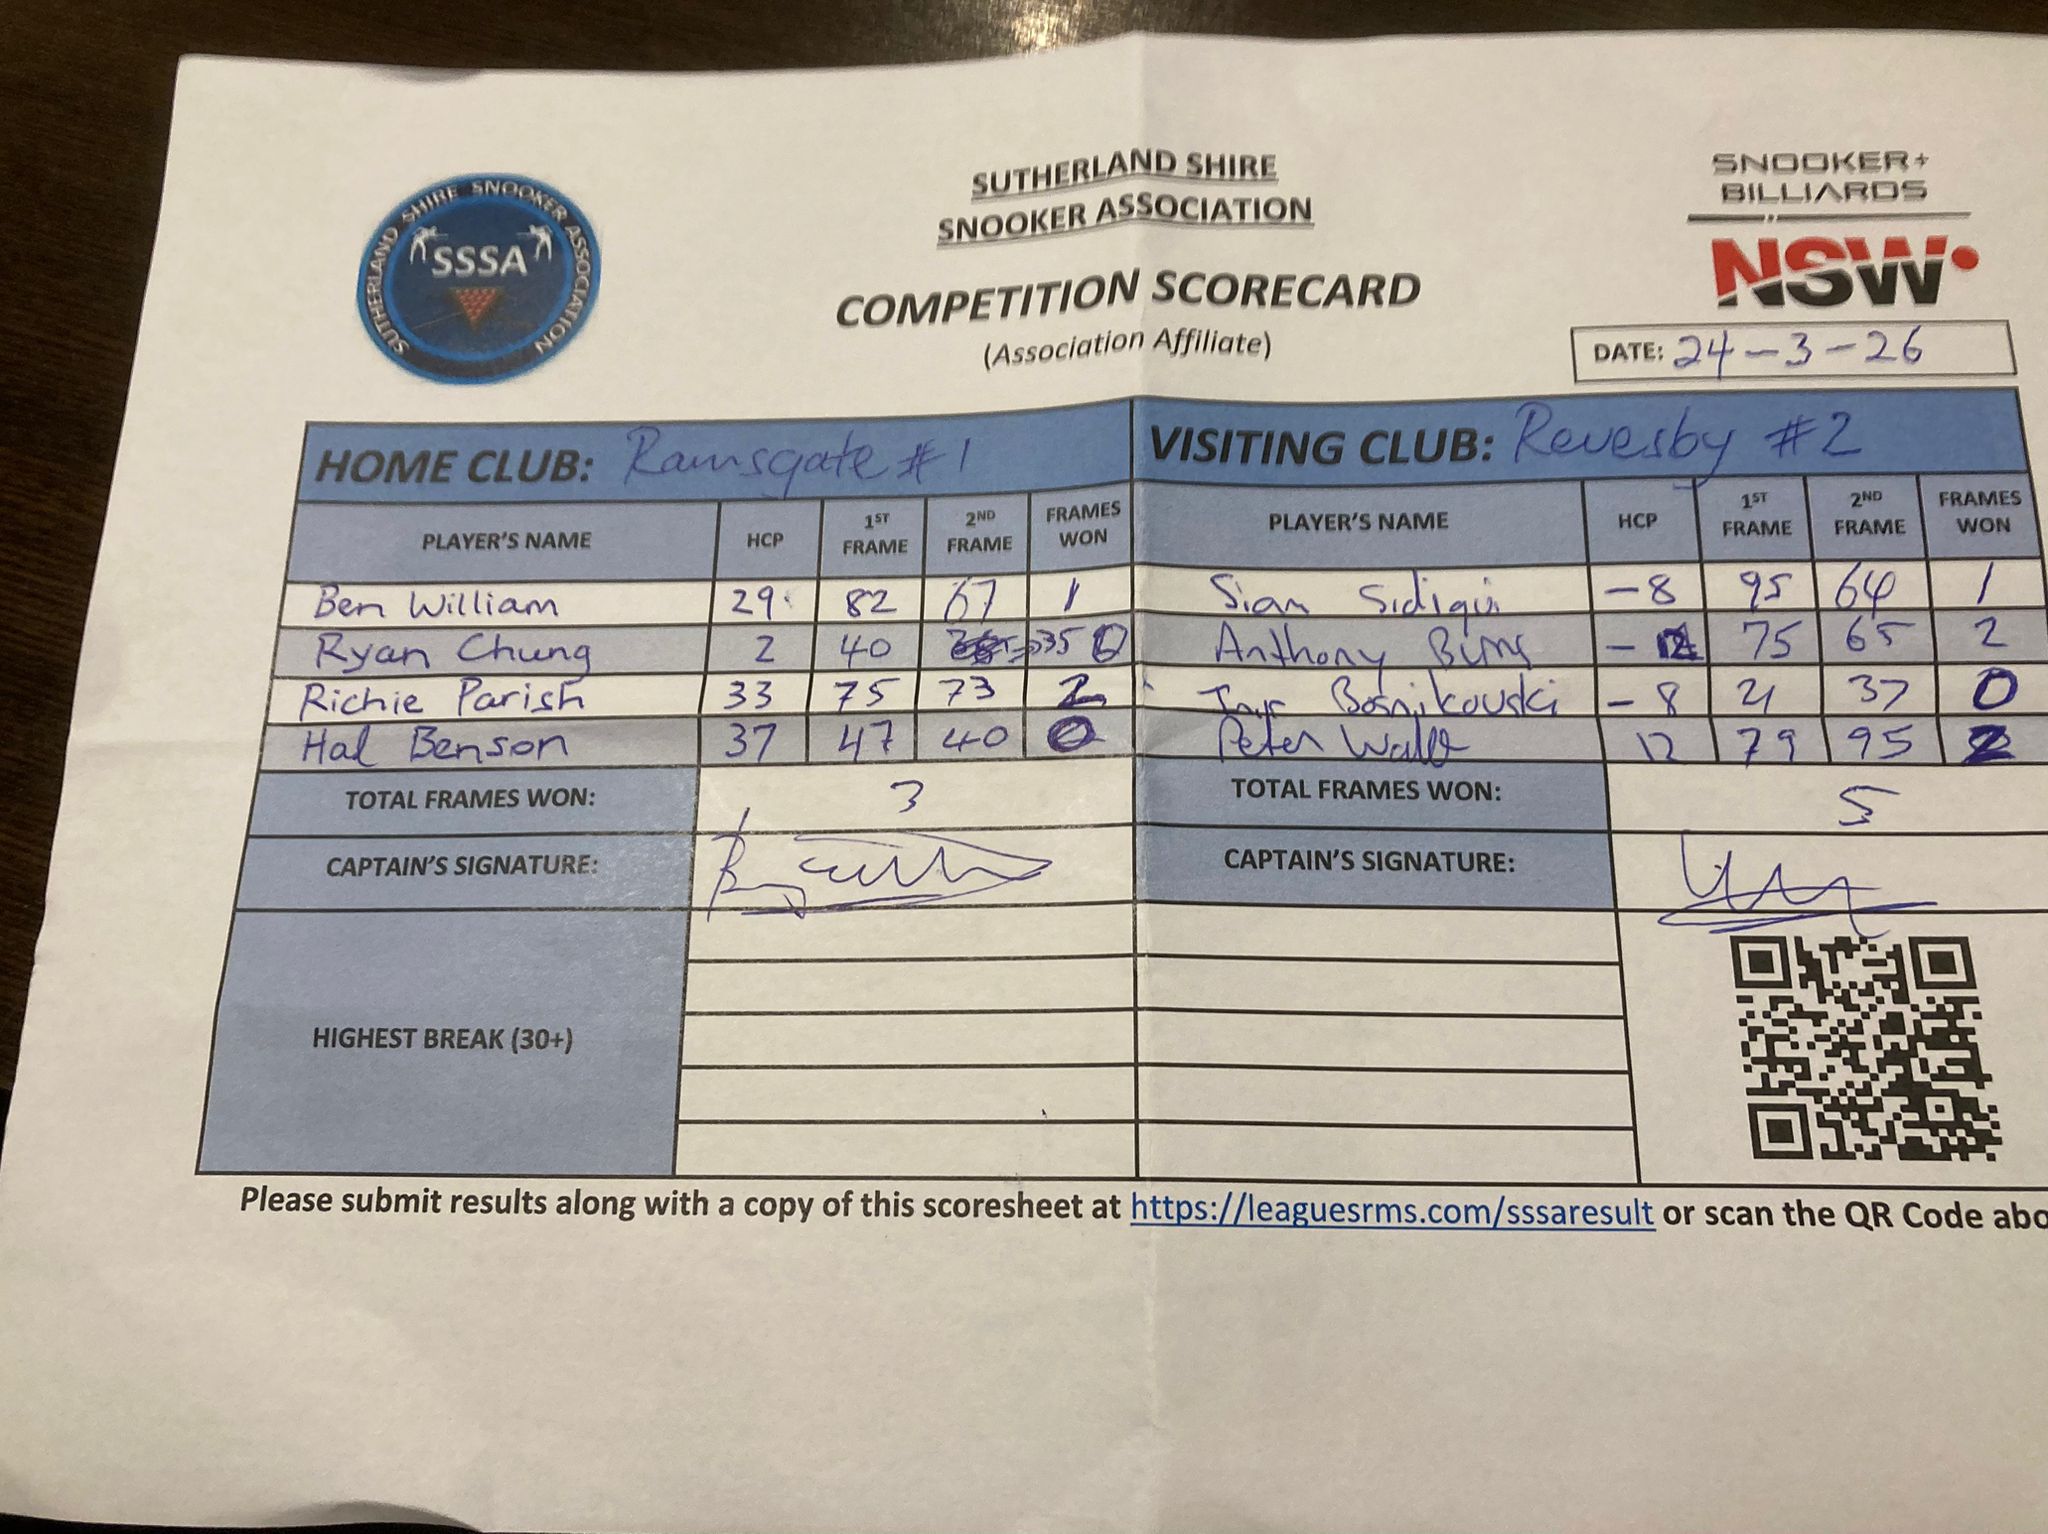 SUTHERLAND SHIRE SNOOKER ASSOCIATION
SSSA
SUTHERLAND SHIRE
SNOOKER ASSOCIATION
COMPETITION SCORECARD
(Association Affiliate)
SNOOKER+
BILLIARDS
NSW
DATE: 24-3-26
HOME CLUB: Ramsgate #1 VISITING CLUB: Revesby #2
PLAYER'S NAME HCP 1ST FRAME 2ND FRAME FRAMES WON PLAYER'S NAME HCP 1ST FRAME 2ND FRAME FRAMES WON
Ben William 29 82 67 1 Siam Sidiqui -8 95 64 1
Ryan Chung 2 40 35 0 Anthony -12 75 65 2
Richie Parish 33 75 73 2 Bosnikouski -8 21 37 0
Hal Benson 37 47 40 0 Peter 12 79 95 2
TOTAL FRAMES WON: 3 TOTAL FRAMES WON: 5
CAPTAIN'S SIGNATURE: CAPTAIN'S SIGNATURE:
HIGHEST BREAK (30+)
Please submit results along with a copy of this scoresheet at https://leaguesrms.com/sssaresult or scan the QR Code abo